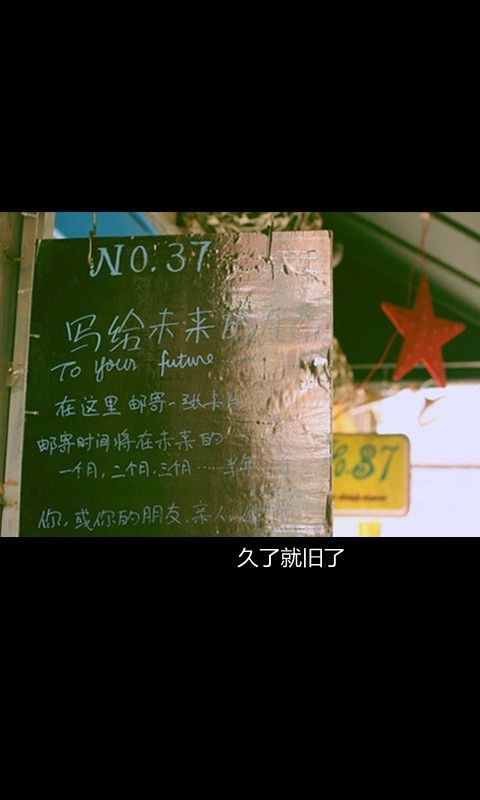 NO.37
写给未来的你
To your future
在这里邮寄一张卡片
邮寄时间将在未来的
一个月,二个月,三个月……半年
你,或你的朋友,亲人
.37
久了就旧了